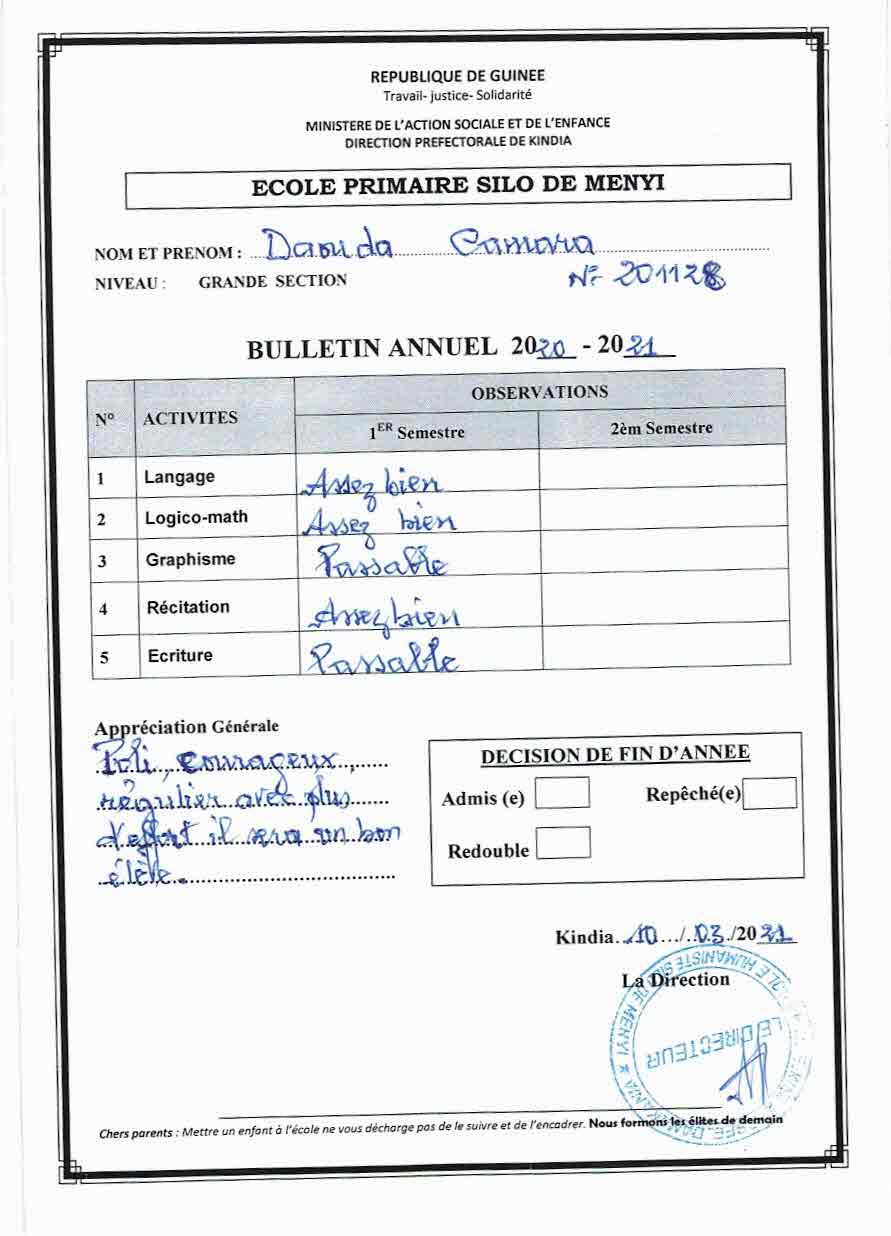 REPUBLIQUE DE GUINEE
Travail- justice- Solidarité
MINISTERE DE L'ACTION SOCIALE ET DE L'ENFANCE
DIRECTION PREFECTORALE DE KINDIA
ECOLE PRIMAIRE SILO DE MENYI
NOM ET PRENOM : Daouda Camara
NIVEAU : GRANDE SECTION N° 201128
BULLETIN ANNUEL 2020 - 2021
N° ACTIVITES OBSERVATIONS
1ER Semestre 2èm Semestre
1 Langage Assez bien
2 Logico-math Assez bien
3 Graphisme Passable
4 Récitation Assez bien
5 Ecriture Passable
Appréciation Générale
Poli, courageux,
régulier avec plus
d'effort il sera un bon
élève.
DECISION DE FIN D'ANNEE
Admis (e) Repêché(e)
Redouble
Kindia 10/03/2021
La Direction
LE DIRECTEUR
HUMANISTE SILO DE MENYI
Chers parents : Mettre un enfant à l'école ne vous décharge pas de le suivre et de l'encadrer. Nous formons les élites de demain